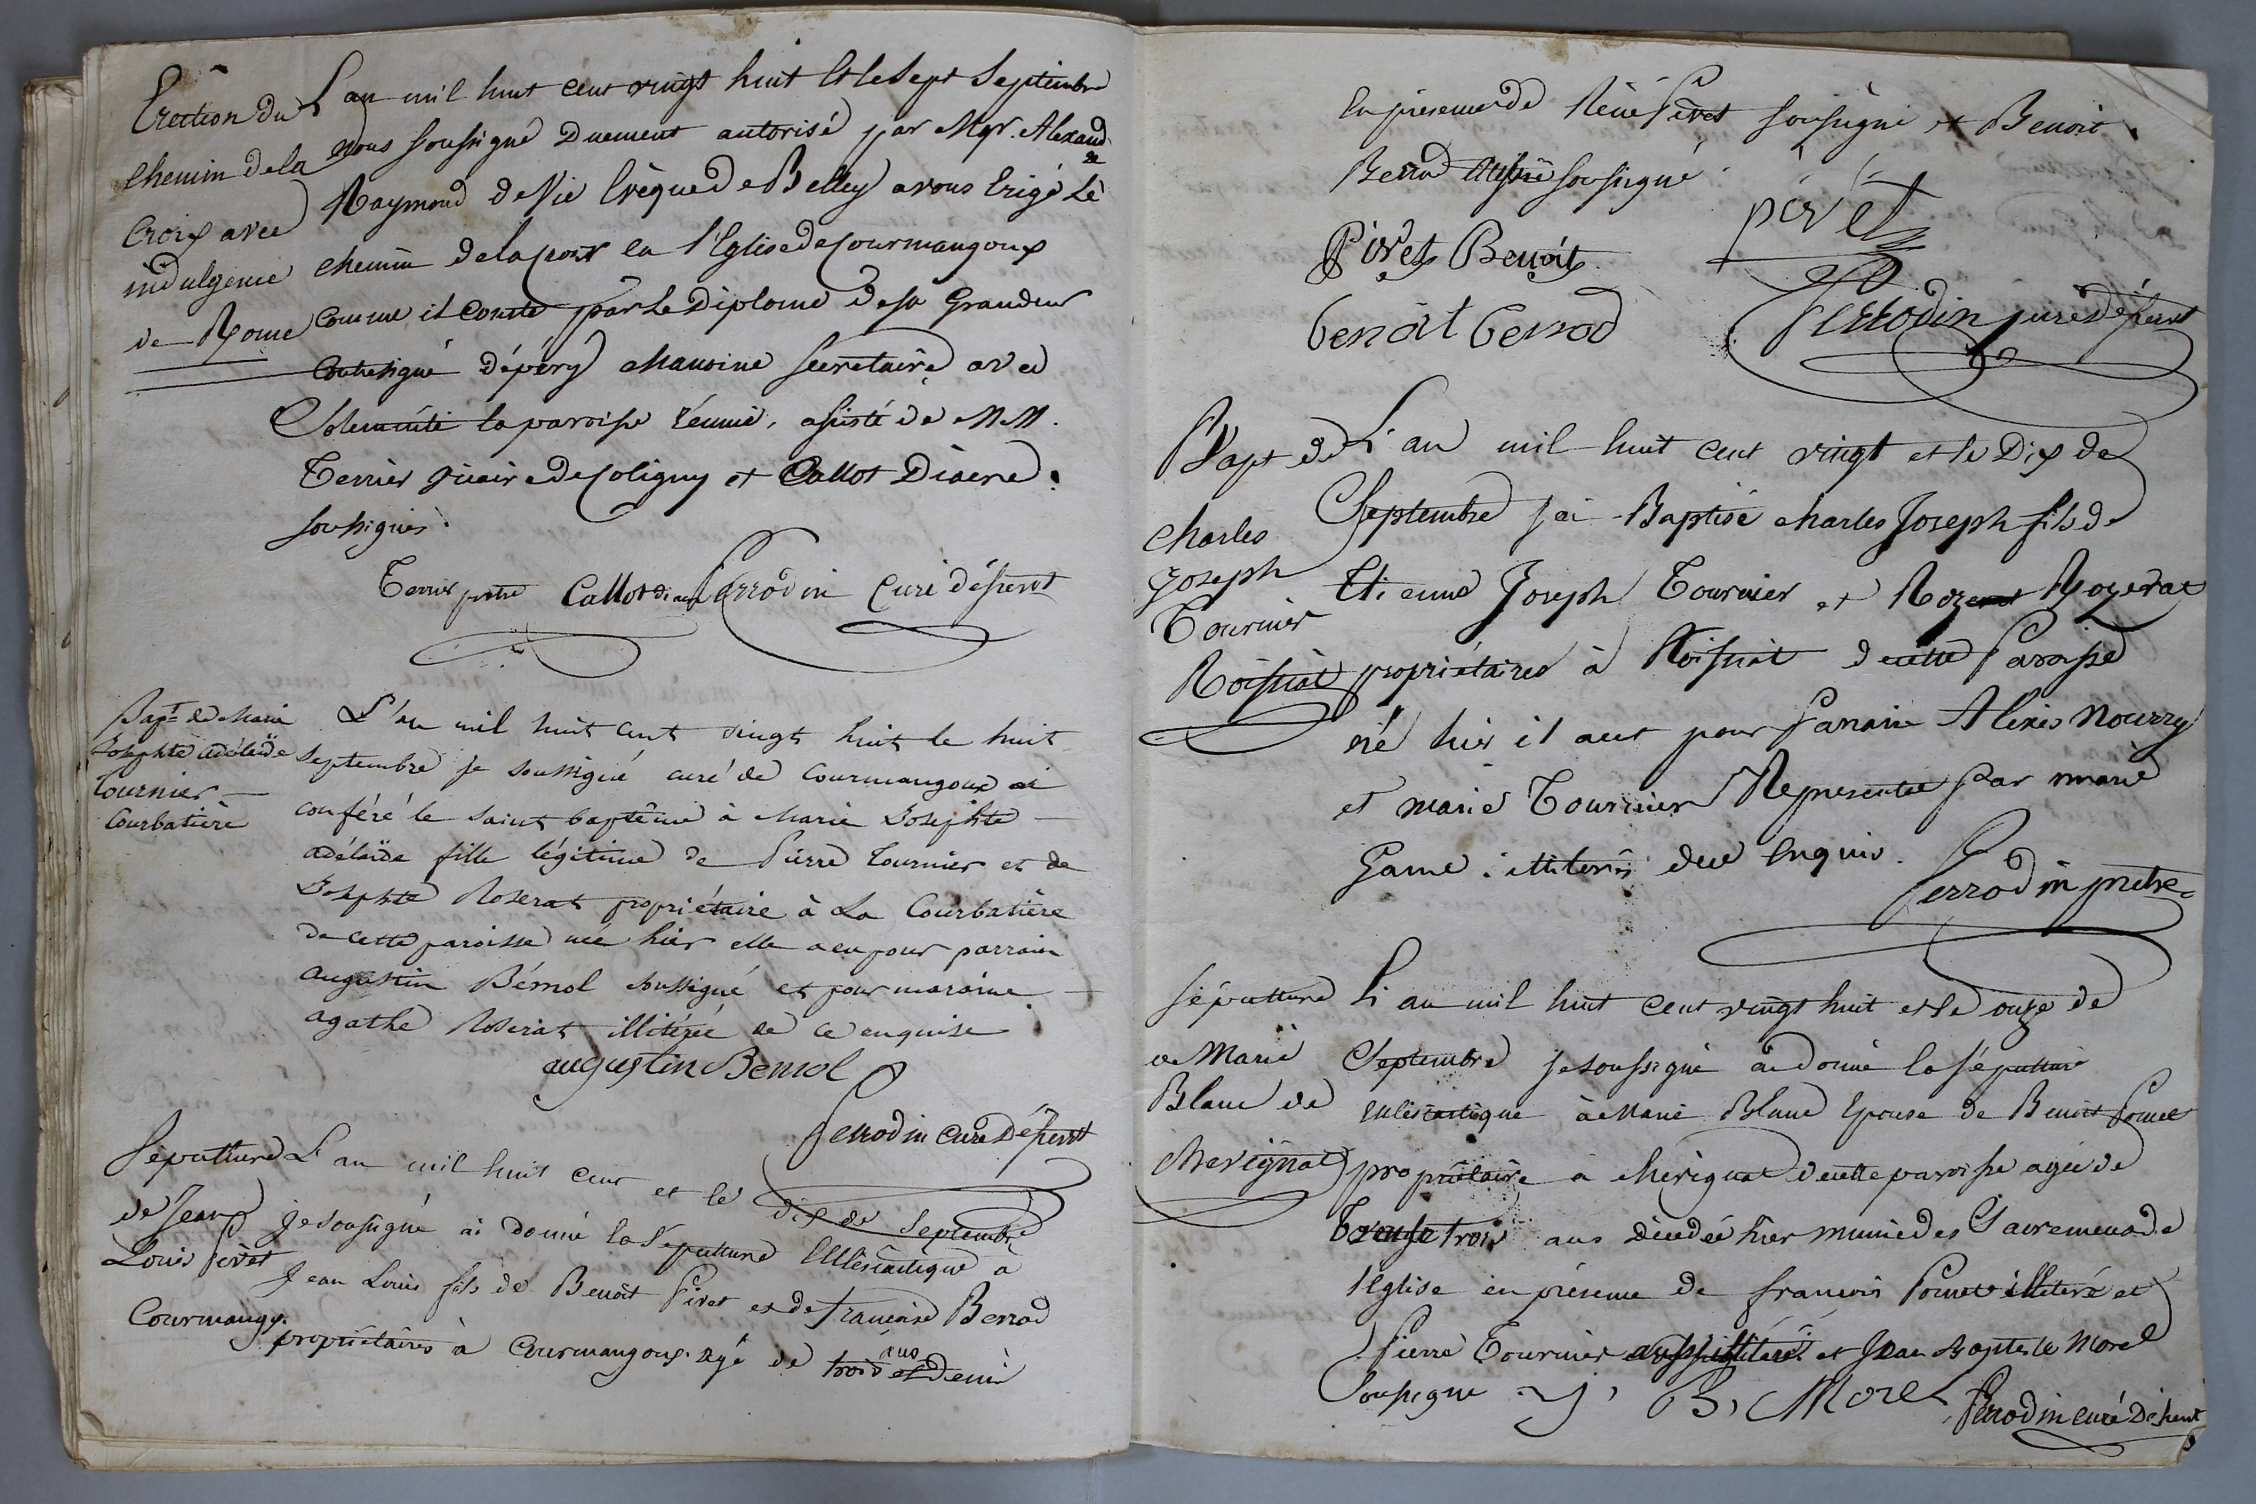 Erection du
chemin de la
Croix avec
indulgence
de Rome
L an mil huit cent vingt huit et le sept Septembre
nous soussigné Duement autorisé par Mgr. Alexand
re
Raymond deVie Evêque de Belley avons Erigé Le
chemin de la croix en l'Eglise de Courmangoux
comme il conste par le Diplome de sa Grandeur
contresigné Dépéry chanoine secretaire avec
Solemnité la paroisse réunie, assisté de MM.
Terrier vicaire de Coligny et Callot Diacre
soussignés.
Terrier prêtre Callot diacre Perrodin Curé désservt
Bapt. de Marie
Josephte adélaïde
Tournier
Courbatière
L'an mil huit cent vingt huit le huit
septembre je soussigné curé de Courmangoux ai
conféré le saint baptême à Marie Josephte
adélaïde fille légitime de Pierre Tournier et de
Josephte Roserat propriétaire à La Courbatière
de cette paroisse née hier elle a eu pour parrain
augustin Bémol soussigné et pour maraine
agathe Roserat illitérée de ce enquise
augustin Bemol
Perrodin curé Désservt
Sépulture
de Jean
Louis Pivet
Courmangx.
L'an mil huit cent et le dix de Septembre
je soussigné ai donné la Sépulture Ecclésiastique à
Jean Louis fils de Benoit Pivet et de francoise Berrod
propriétaires à Courmangoux agé de trois ans et Demi
En présence de Réné Pivet soussigné et Benoit
Berrod aussi soussigné
pivet
Pivet Benoit
benoit berrod
Perrodin curé Déservt
Bapt de
Charles
Joseph
Tournier
Roissiat
L'an mil huit cent vingt et le Dix de
Septembre j'ai Baptisé charles Joseph fils de
Etienne Joseph Tournier et Rozerat
propriétaires à Roissiat de cette Paroisse
né hier il a eut pour Parrain Alexis Nourry
et marie Tournier Representée par marie
Game illiterés de ce Enquis.
Perrodin prêtre
sépulture
de Marie
Blanc de
Chevignat
L'an mil huit cent vingt huit et le onze de
Septembre je soussigné ai donné la sépulture
ecclésiastique à Marie Blanc Epouse de Benoit Pomet
propriétaire à chevignat de cette paroisse agée de
trente trois ans décedée hier munie des Sacremens de
l'Eglise en présence de françois Pomet illiteré et
Pierre Tournier aussi illiteré et Jean Baptiste Morel
soussigné J. B, Morel
Perrodin curé Déservt